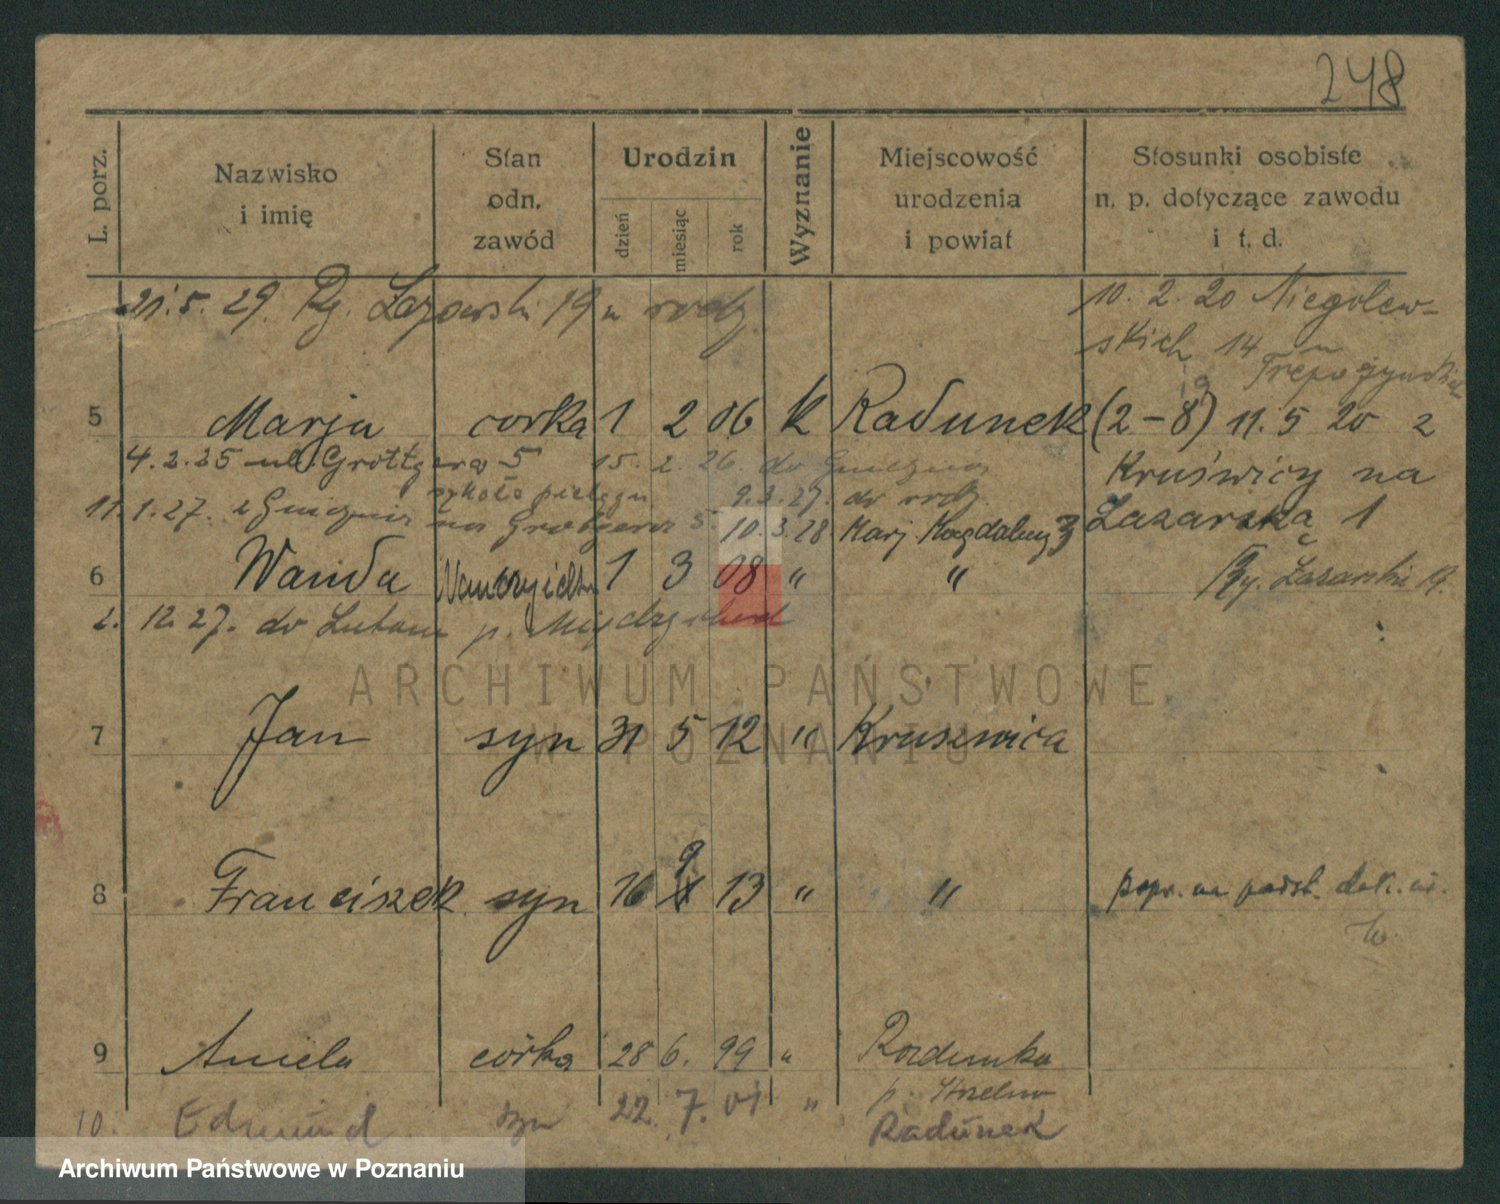 248
L. porz.
Nazwisko
i imię
Stan
odn.
zawód
Urodzin
dzień
miesiąc
rok
Wyznanie
Miejscowość
urodzenia
i powiat
Stosunki osobiste
n. p. dotyczące zawodu
i t. d.
21. 5. 29. Ry. Łazarski 19 u rodz.
10. 2. 20 Niegolew-
skich 14
5 Marja corka 1 2 06 k Radunek (2-8) 11. 5 20 z
4. 2. 25 ul. Grottgera 5 15. 2. 26. do Gniezna
Kruświcy na
9. 3. 27. do rodz.
11. 1. 27. z Gniezna na Grotgera 5. 10. 3. 28 Marj. Magdaleny 3
Łazarską 1
6 Wanda 1 3 08 " "
Ry. Łazarski 19.
2. 12. 27. do p. Międzychod
ARCHIWUM PAŃSTWOWE
W POZNANIU
7 Jan syn 31 5 12 " Kruszwica
8 Franciszek syn 16 9 13 " " popr. na podst. dok.
9 Aniela córka 28 6. 99 "
p. Strzelno
10. Edmund syn 22. 7. 01 " Radunek
Archiwum Państwowe w Poznaniu